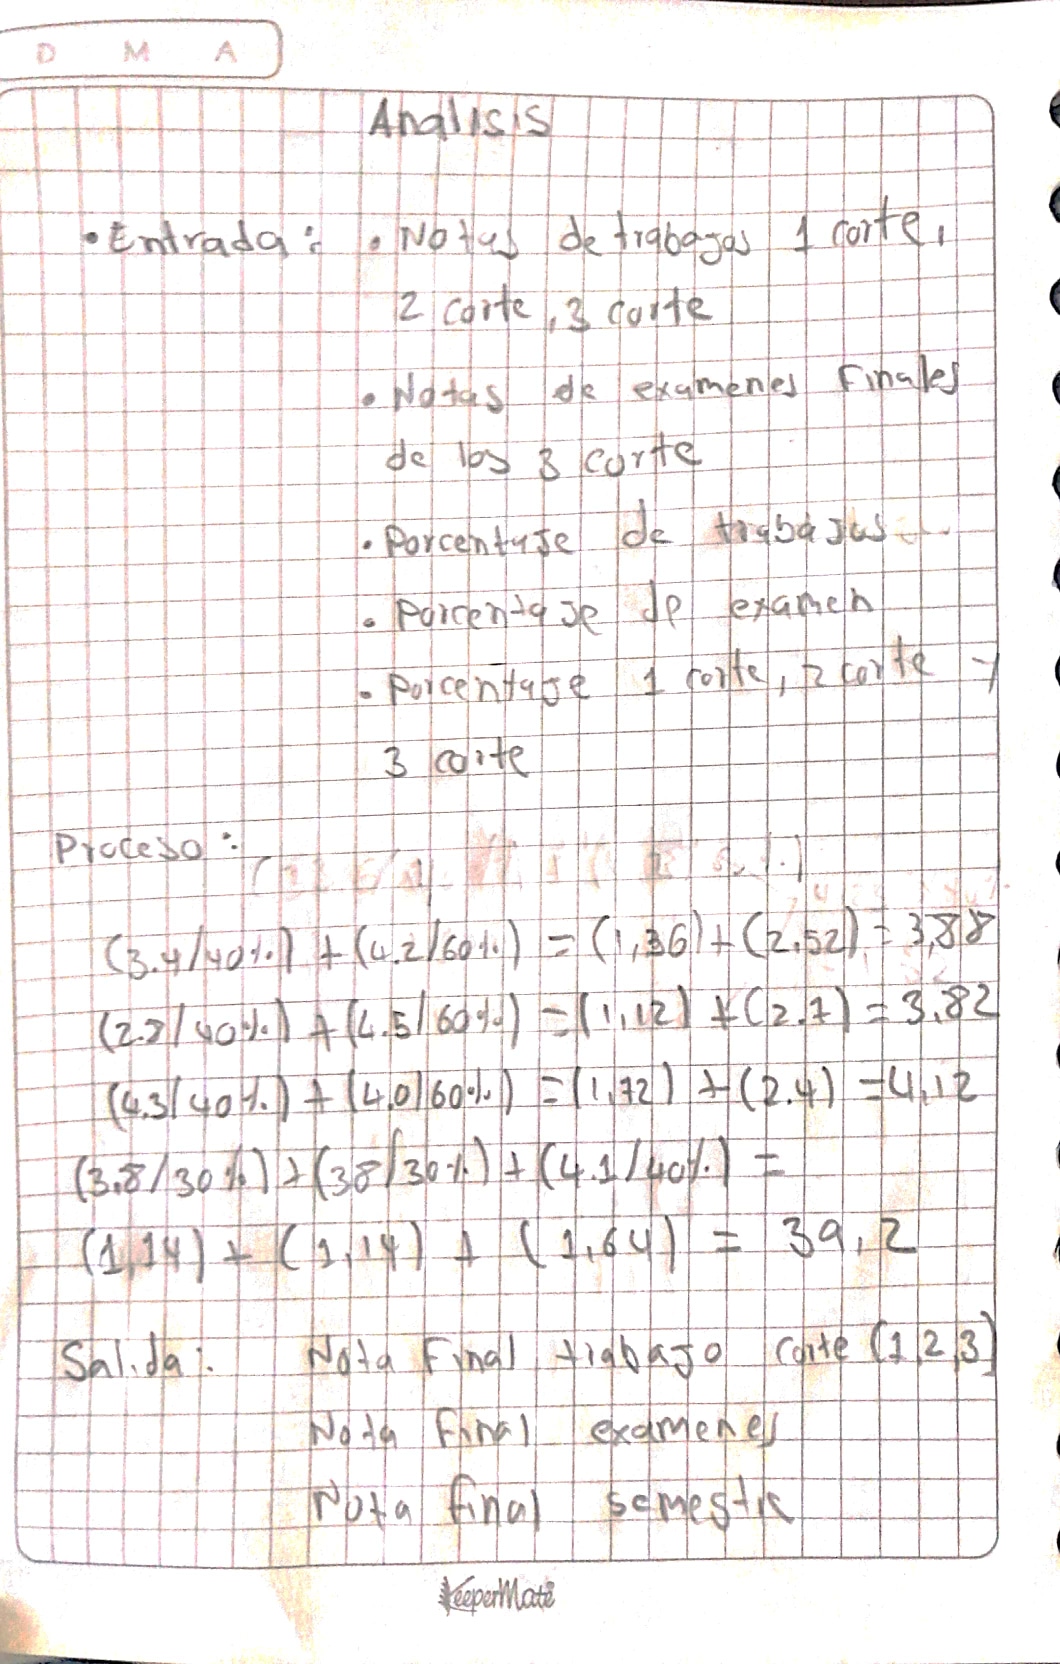 D M A
Analisis
• Entrada: • Notas de trabajos 1 corte,
2 corte, 3 corte
• Notas de examenes Finales
de los 3 corte
• Porcentaje de trabajos
• Porcentaje de examen
• Porcentaje 1 corte, 2 corte y
3 corte
Proceso:
(3.4/40%) + (4.2/60%) = (1,36) + (2.52) = 3,88
(2.8/40%) + (4.5/60%) = (1,12) + (2.7) = 3.82
(4.3/40%) + (4,0/60%) = (1,72) + (2.4) = 4,12
(3.8/30%) + (38/30%) + (4.1/40%) =
(1,14) + (1,14) + (1,64) = 39,2
Salida: Nota Final trabajo corte (1,2,3)
Nota Final examenes
Nota final semestre
KeeperMate